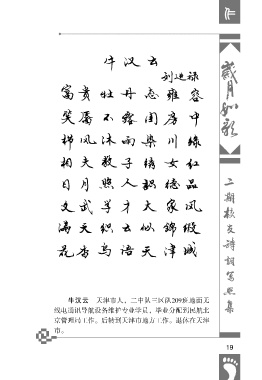 牛汉云
刘延禄
富贵牡丹志雍容
笑居不露闺房中
栉风沐雨柴川绿
相夫教子绣女红
日月照人韵德品
文武学才大家风
满天织云似锦缎
花香鸟语天津城
牛汉云 天津市人,二中队三区队209班地面无
线电通讯导航设备维护专业学员,毕业分配到民航北
京管理局工作。后转到天津市地方工作。退休在天津
市。
岁月如歌
二期校友诗词写照集
19